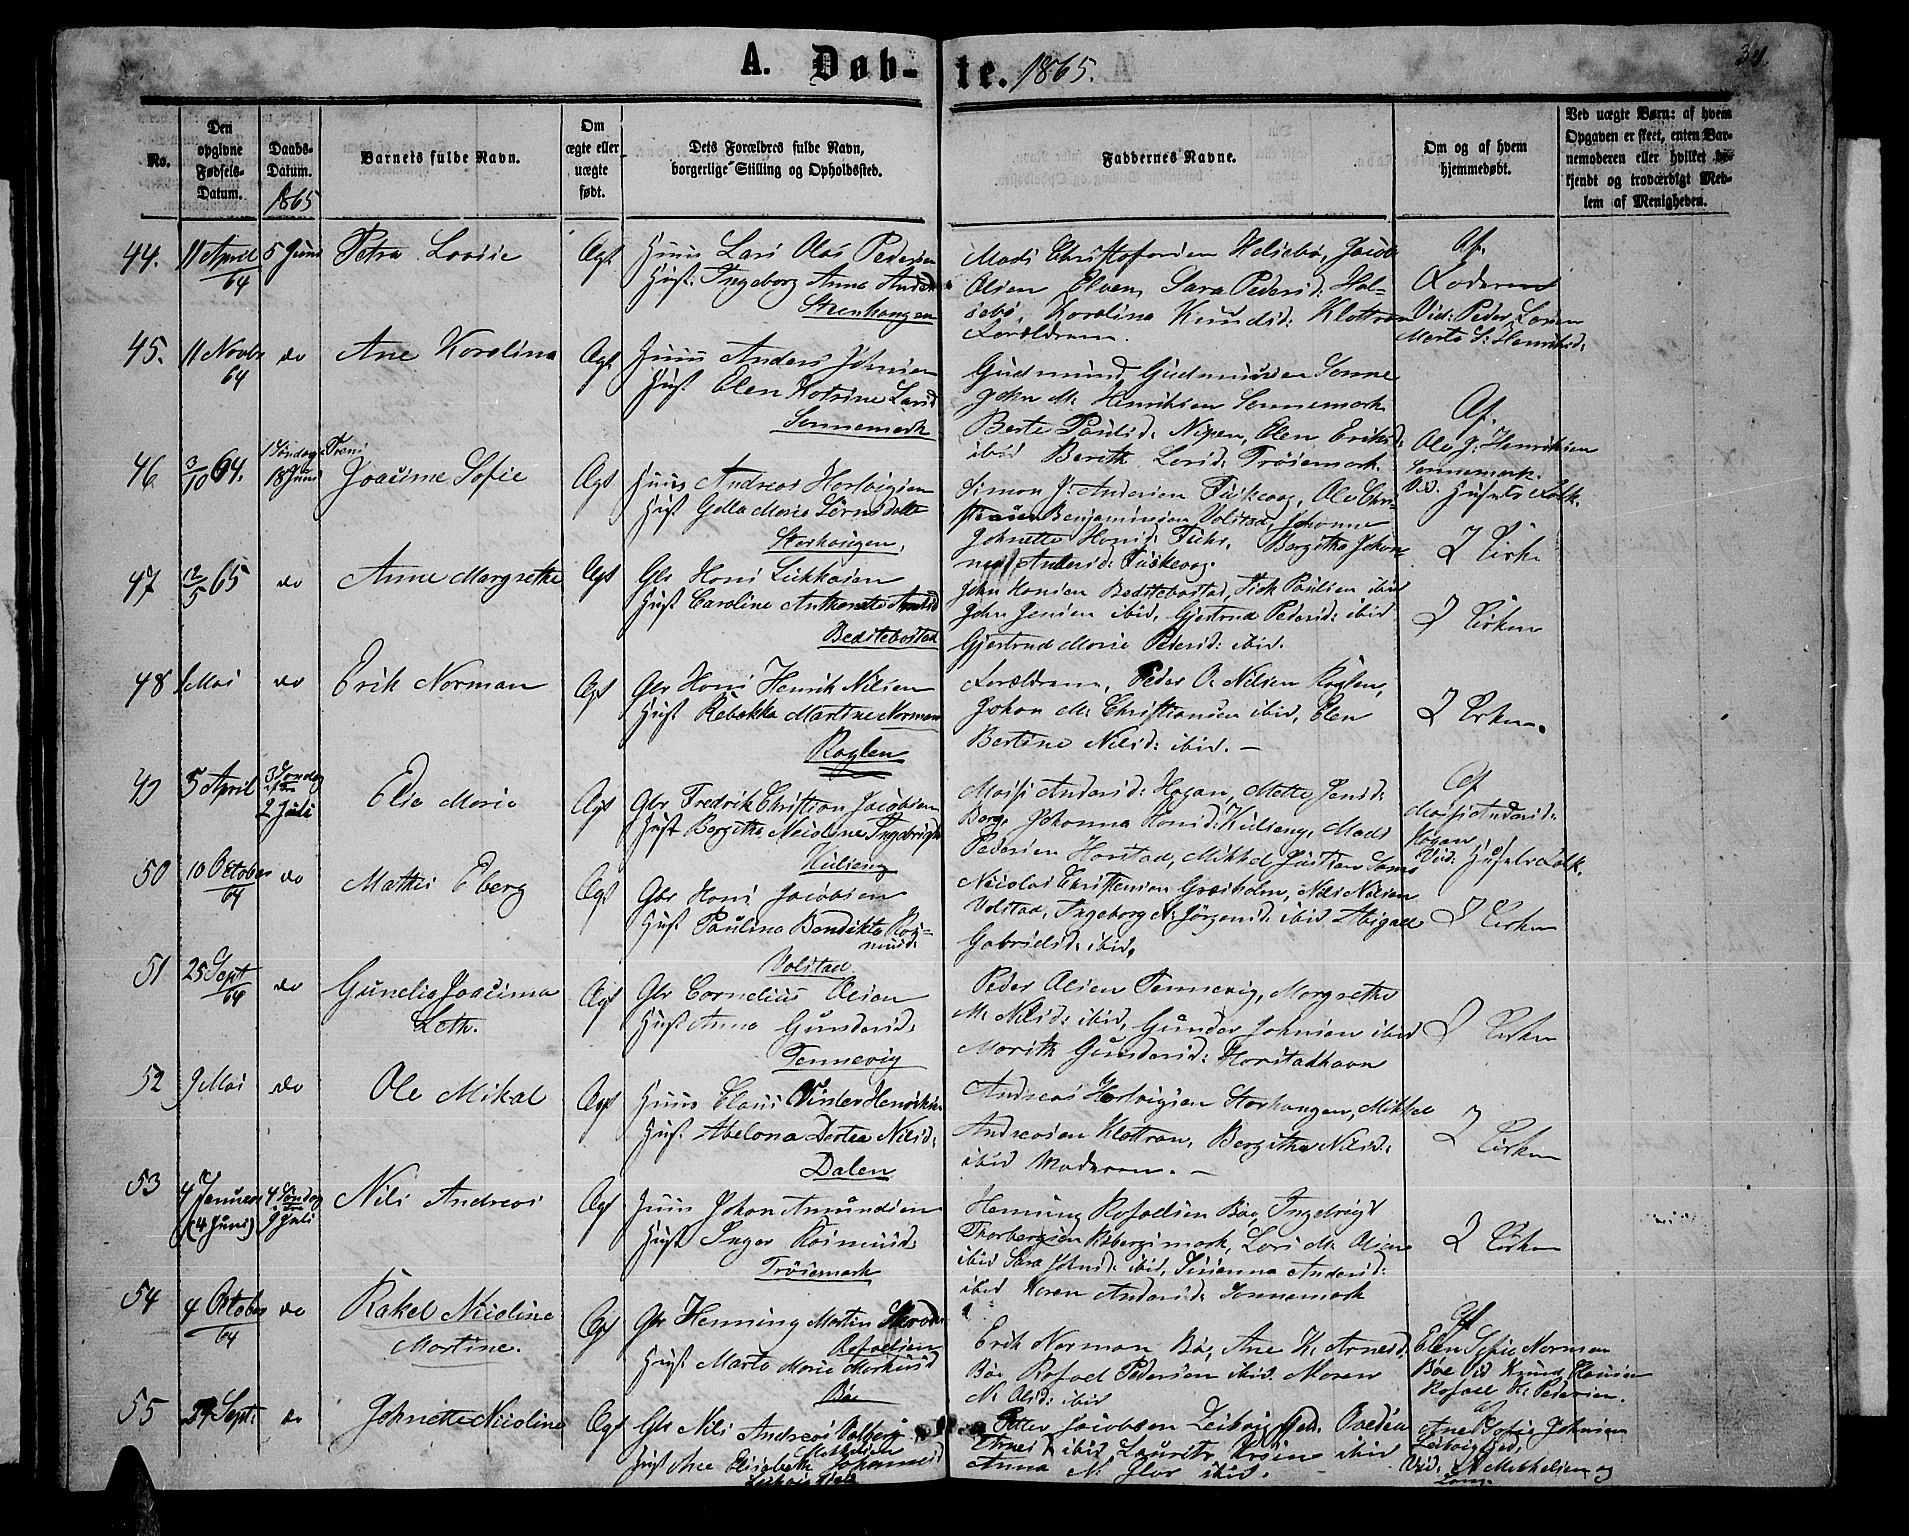 A. Døb- te. 1865.
34.
No.
Den opgivne Fødsels-Datum.
Daabs-Datum. 1865
Barnets fulde Navn.
Om ægte eller uægte født.
Dets Forældres fulde Navn, borgerlige Stilling og Opholdssted.
Faddernes Navne.
Om og af hvem hjemmedøbt.
Ved uægte Børn: af hvem Opgaven er skeet, enten Barnemoderen eller hvilket bekjendt og troværdigt Medlem af Menigheden.
44. 11 April/64 5 Juni Petra Lovise Ægt Huus Lars Olai Pedersen
Hust. Ingeborg Anna Andersd
Mads Christofersen Helsebø, Jacob
Olsen Elven, Sara Pedersd: Hol-
sebø, Karolina Knudsd: Klottran
Forældrene.
Af Faderen
Vid: Peder Larsen
45. 11 Novbr/64 do Ane Karolina Ægt Huus Anders Johnsen
Hust Elen Katrine Larsd
Sonnemark
Gudmund Gudmunsen Sonne
John M. Henriksen Sonnemark
Berte Paulsd: Nipen, Elen Eriksd:
ibid Berith Larsd: Trøsemark.
Af
Ole J. Henriksen
Sonnemark.
Vid. Husets Folk.
46 3/10 64. 1 Søndag Trini 18 Juni Joacime Sofie Ægt Huus Andreas Hartvigsen
Storhaugen.
Simon J. Andersen Fiskevog, Ole Chri-
stiansen Benjaminsen Volstad, Johanna
I Kirken
47 12/5 65 do Anne Margrethe Ægt Gbr Hans Lukkasen
Hust Caroline Anthonette Arntsd
Bedstebostad
John Hansen Bedstebostad, Isak Paulsen ibid
John Jensen ibid, Gjertrud Pedersd: ibid
Gjertrud Marie Pedersd: ibid.
I Kirken
48 1 Mai do Erik Norman Ægt Gbr Hans Henrik Nilsen
Hust Rebekka Martine Norman
Roglen
Forældrene, Peder O. Nilsen Roglen,
Johan M. Christiansen ibid, Elen
Bertine Nilsd: ibid. –
I Kirken.
49 5 April 3 Søndag 2 Juli Elie Marie Ægt Gbr Fredrik Christian Jacobsen
Hust Bergithe Nicoline Ingebrigtsd
Kilseng
Maisi Andersd: Hagan, Mette Jensd:
Berg, Johanna Hansd: Kilseng, Mads
Pedersen Harstad, Mikkel Justinsen Sama
Af
Maisi Andersd:
Hagan,
Vid: Husets Folk.
50 10 October/64 do Mathis Eberg Ægt Gbr Hans Jacobsen
Hust Paulina Bendikte Ras-
musd:
Volstad
Nicolai Christensen Grasholm, Nils Nilsen
Volstad, Ingeborg N. Jørgensd: ibid Abigael
Gabrielsd: ibid.
I Kirken
51 25 Sept/64 do Gunelia Joacima
Leth.
Ægt Gbr Cornelius Olsen
Hust Anna Gundersd:
Tennevig
Peder Olsen Tennevig, Margrethe
M. Nilsd: ibid, Gunder Johnsen ibid
Marith Gundersd: Harstadhavn
I Kirken
52 9 Mai do Ole Mikal Ægt Huus Claus Vinter Henriksen
Hust. Abelona Dortea Nilsd:
Dalen
Andreas Hartvigsen Storhaugen, Mikkel
Andreasen Klottran, Bergithe Nilsd:
ibid Moderen. –
I Kirken
53 4 Januar (4 Juni) 4 Søndag 9 Juli Nils Andreas Ægt Huus Johan Amundsen
Hust Inger Rasmusd:
Trøsemark
Henning Rafaelsen Bøe, Ingebrigt
Thorbergsen Ksbergsmark, Lars M. Olsen
ibid Sara Johnsd: ibid, Susanna Andersd:
ibid Karen Andersd: Sonnemark
I Kirken
54 4 October/64 do Rakel Nicoline
Martine.
Ægt Gbr Henning Martin
Rafaelsen
Hust Marta Marie Markusd
Bøe
Erik Norman Bø, Ane K. Arnesd:
Bøe Rafael Pedersen ibid. Maren
N. Olsd: ibid
Af
Elen Sofie Norman
Bøe Vid Knud Hansen
Rafael K. Pedersen.
55 27 Sept: do Johnette Nicoline Ægt Gbr Nils Andreas Volberg
Mathisen
Hust Ane Elisabeth Johannesd
Peter Jacobsen
Arnesd ibid Laurits Krisen ibid
Anna M. Flor ibid.
af
Ane Sofie Johnsen
Vid: